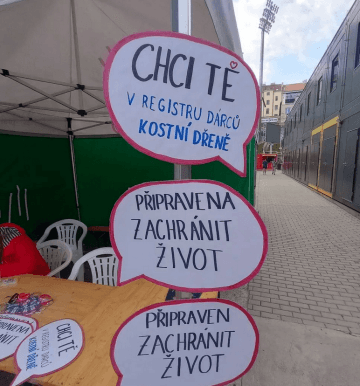 CHCI TĚ
V REGISTRU DÁRCŮ
KOSTNÍ DŘENĚ
PŘIPRAVENA
ZACHRÁNIT
ŽIVOT
PŘIPRAVEN
ZACHRÁNIT
ŽIVOT
CHCI TĚ
KOSTNÍ DŘENĚ